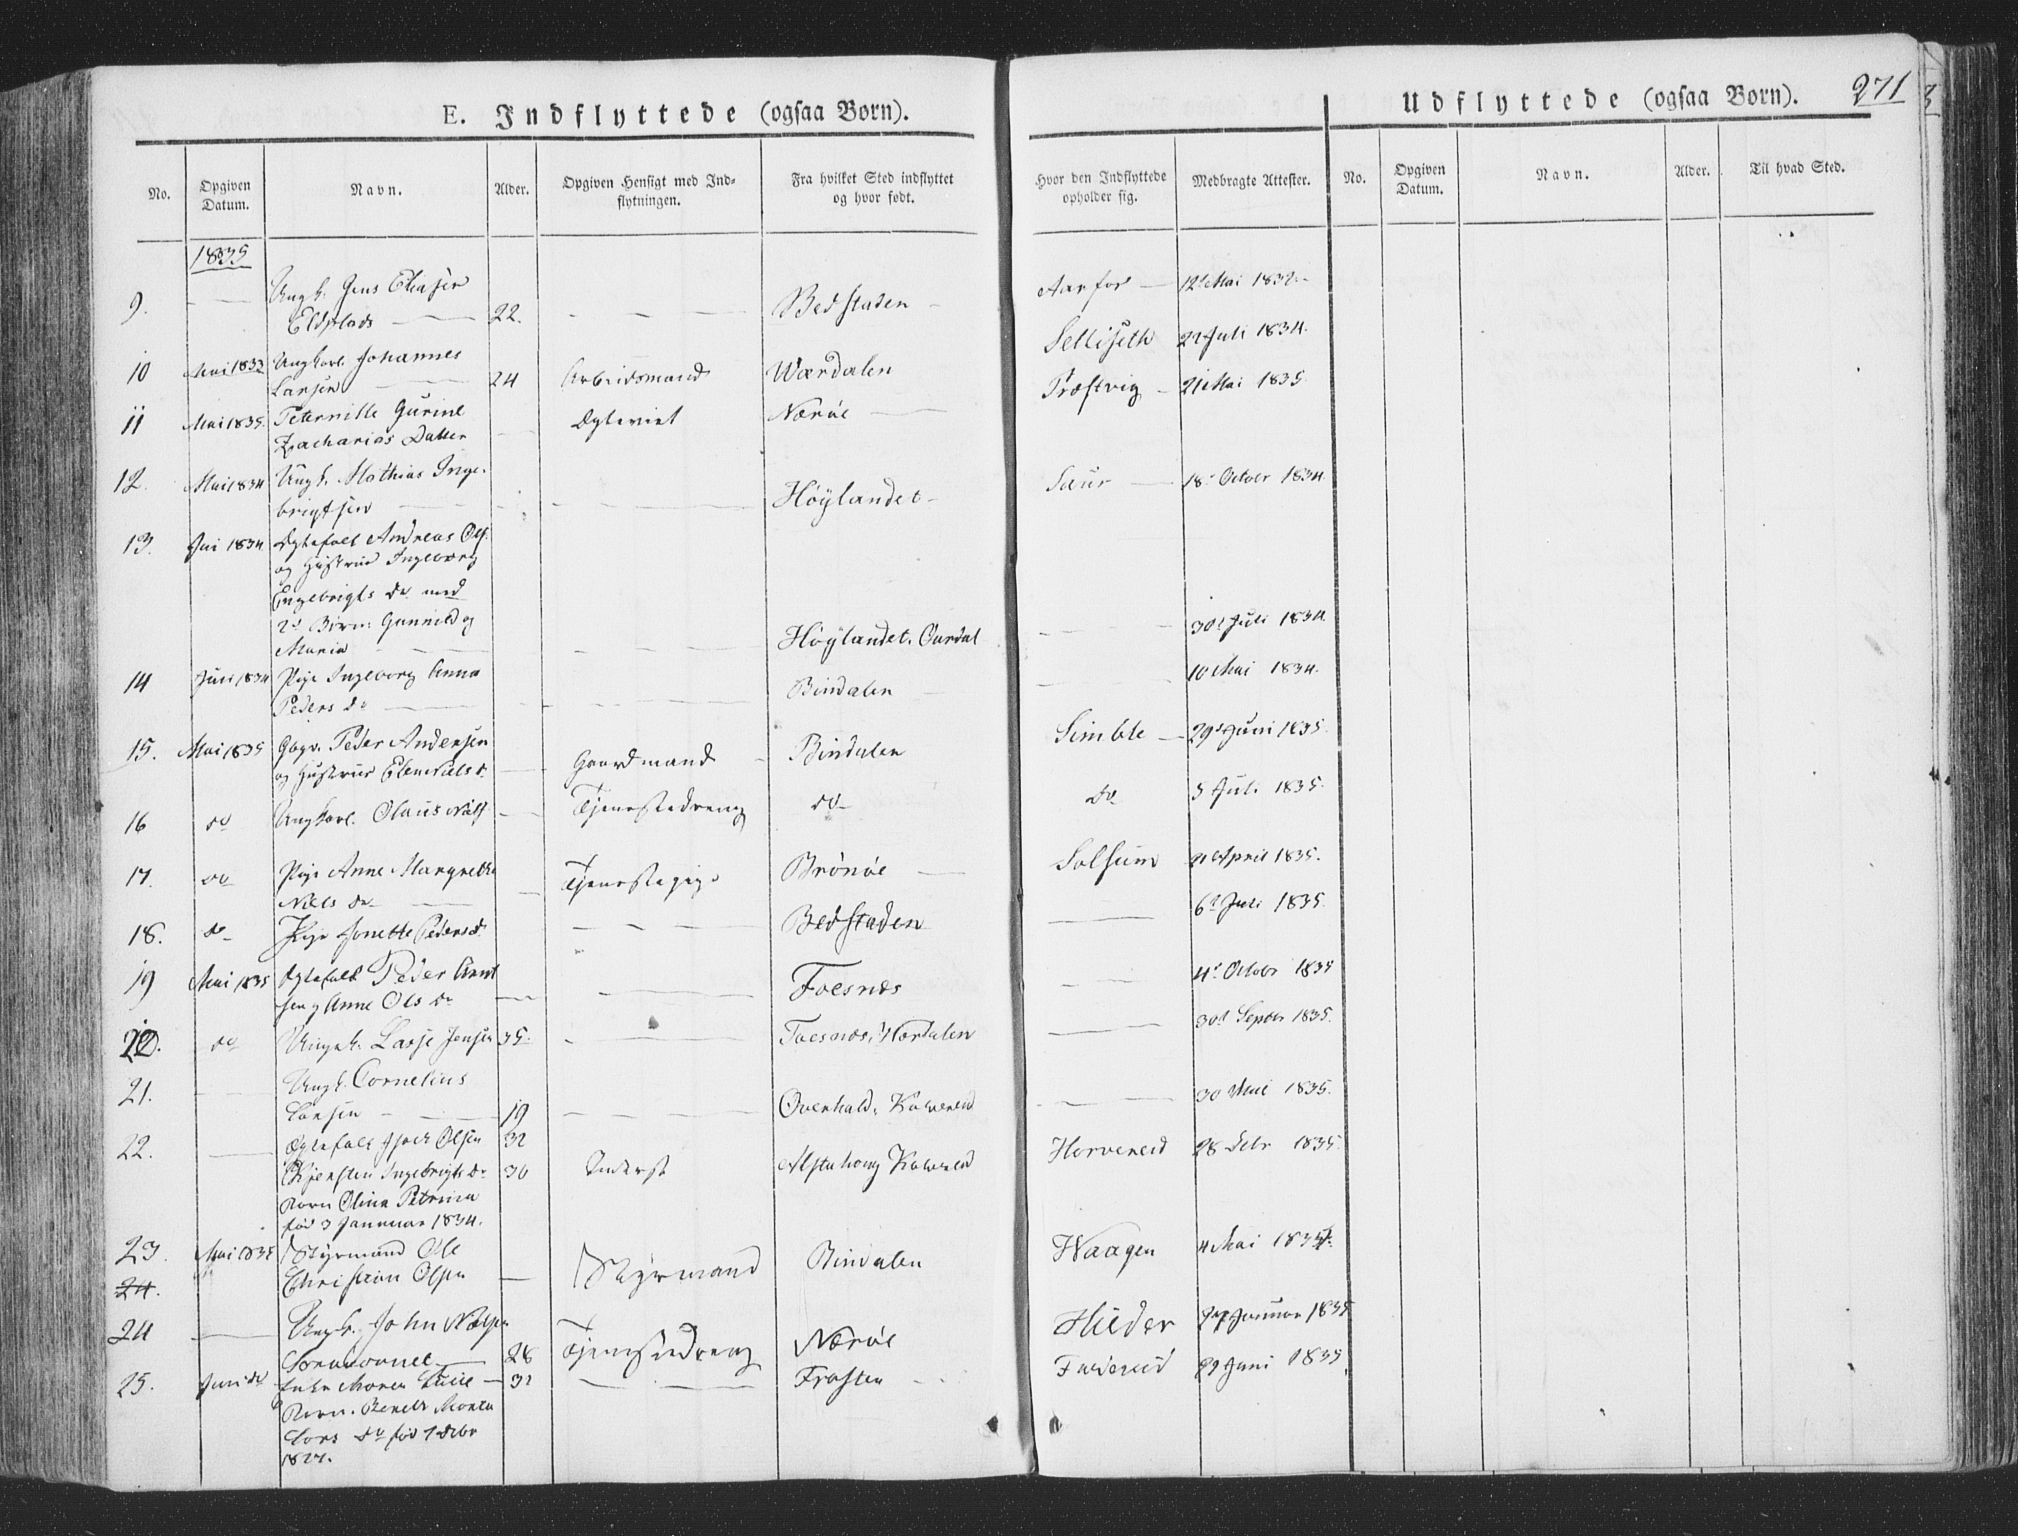 E. Indflyttede (ogsaa Børn).
Udflyttede (ogsaa Børn). 271
No. Opgiven Datum. Navn. Alder. Opgiven Hensigt med Indflytningen. Fra hvilket Sted indflyttet og hvor født. Hvor den Indflyttede opholder sig. Medbragte Attester. No. Opgiven Datum. Navn. Alder. Til hvad Sted.
1835
9. Ungk. Jens Eliasen 22. Bedstaden Aarfor 12 Mai 1832
Eldsplads
Selliseth 22 Juli 1834.
10 Mai 1833 Ungkarl Johannes
Larsen 24 Arbeidsmand Wærdalen Præstvig 21 Mai 1835
11 Mai 1835. Peternille Gurine Ægteviet Nærøe
Zacharias Datter
12. Mai 1834 Ungk. Mathias Inge-
brigtsen Høylandet Saur 18 October 1834
13. Juni 1834 Ægtefolk Andreas Ols.
og Hustrue Ingeborg
Engebrigts dr. med
2 Børn: Gunnild og
Maria Høylandet. 30 Juli 1834
14 Juli 1834 Pige Ingeborg Anna Bindalen 10 Mai 1834.
Peders dr
15. Mai 1835 Peder Andersen Gaardmand Bindalen Simble 29 Juni 1835
og Hustrue Elen Niels d.
16 do Ungkarl. Olaus Nilss Tjenestedreng do do 5 Juli 1835.
17. do Pige Anne Margrethe Tjenestepige Brønøe Solsum 21 April 1835.
Niels dr
18. do Pige Jonette Peders d. Bedstaden 6 Juli 1835
19 Mai 1835 Ægtefolk Peder Arnt Foesnæs 4 Octobr 1835
sen og Anne Ols dr
20. do Ungk. Lasse Jensen 35. Foesnæs, Værdalen 30 Septbr 1835.
21. Ungk. Cornelius
Larsen 19 Overhald, Kolvereid 30 Mai 1835.
22. Ægtefolk Olsen 32
Kjersten Ingebrigts dr 30 Inderst Alstahoug Kolvereid Horvereid 28 Debr 1835
Barn Olina Petrina
fød 3 Januar 1834.
23. Mai 1835 Styrmand Ole Styrmand Bindalen Waagen 4 Mai 1834
24. Christian Olsen
24 Ungk. John Nielsen
28 Tjenestedreng Nærøe Hilder Januar 1835
25. Juni do Enke Maren Lucie 32 Frosten 29 Juni 1835
Barn. Benedt Maria
Lars dr fød 1 Debr
1827.